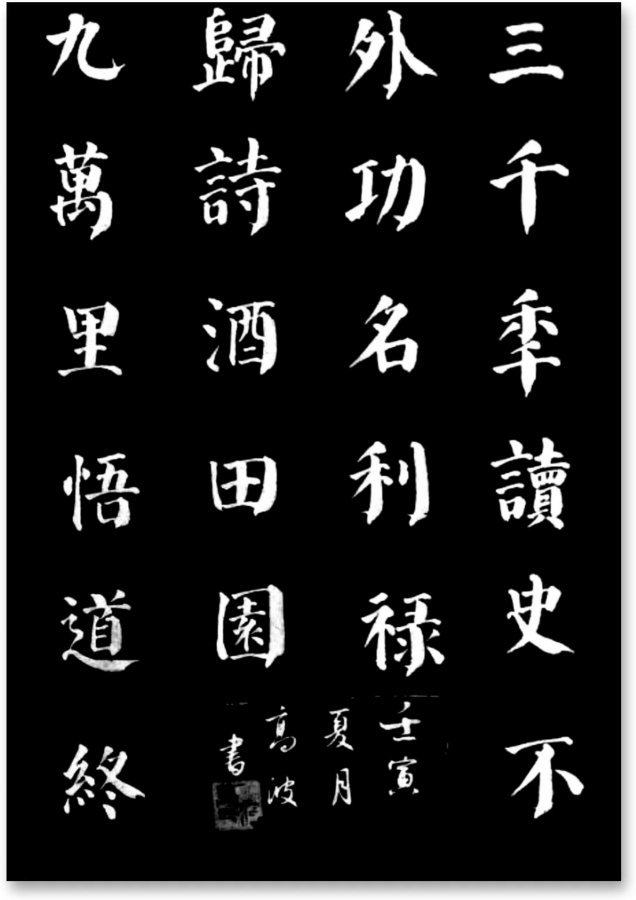 三千秊讀史不
外功名利禄
九萬里悟道終
歸詩酒田園
壬寅
夏月
高波
書